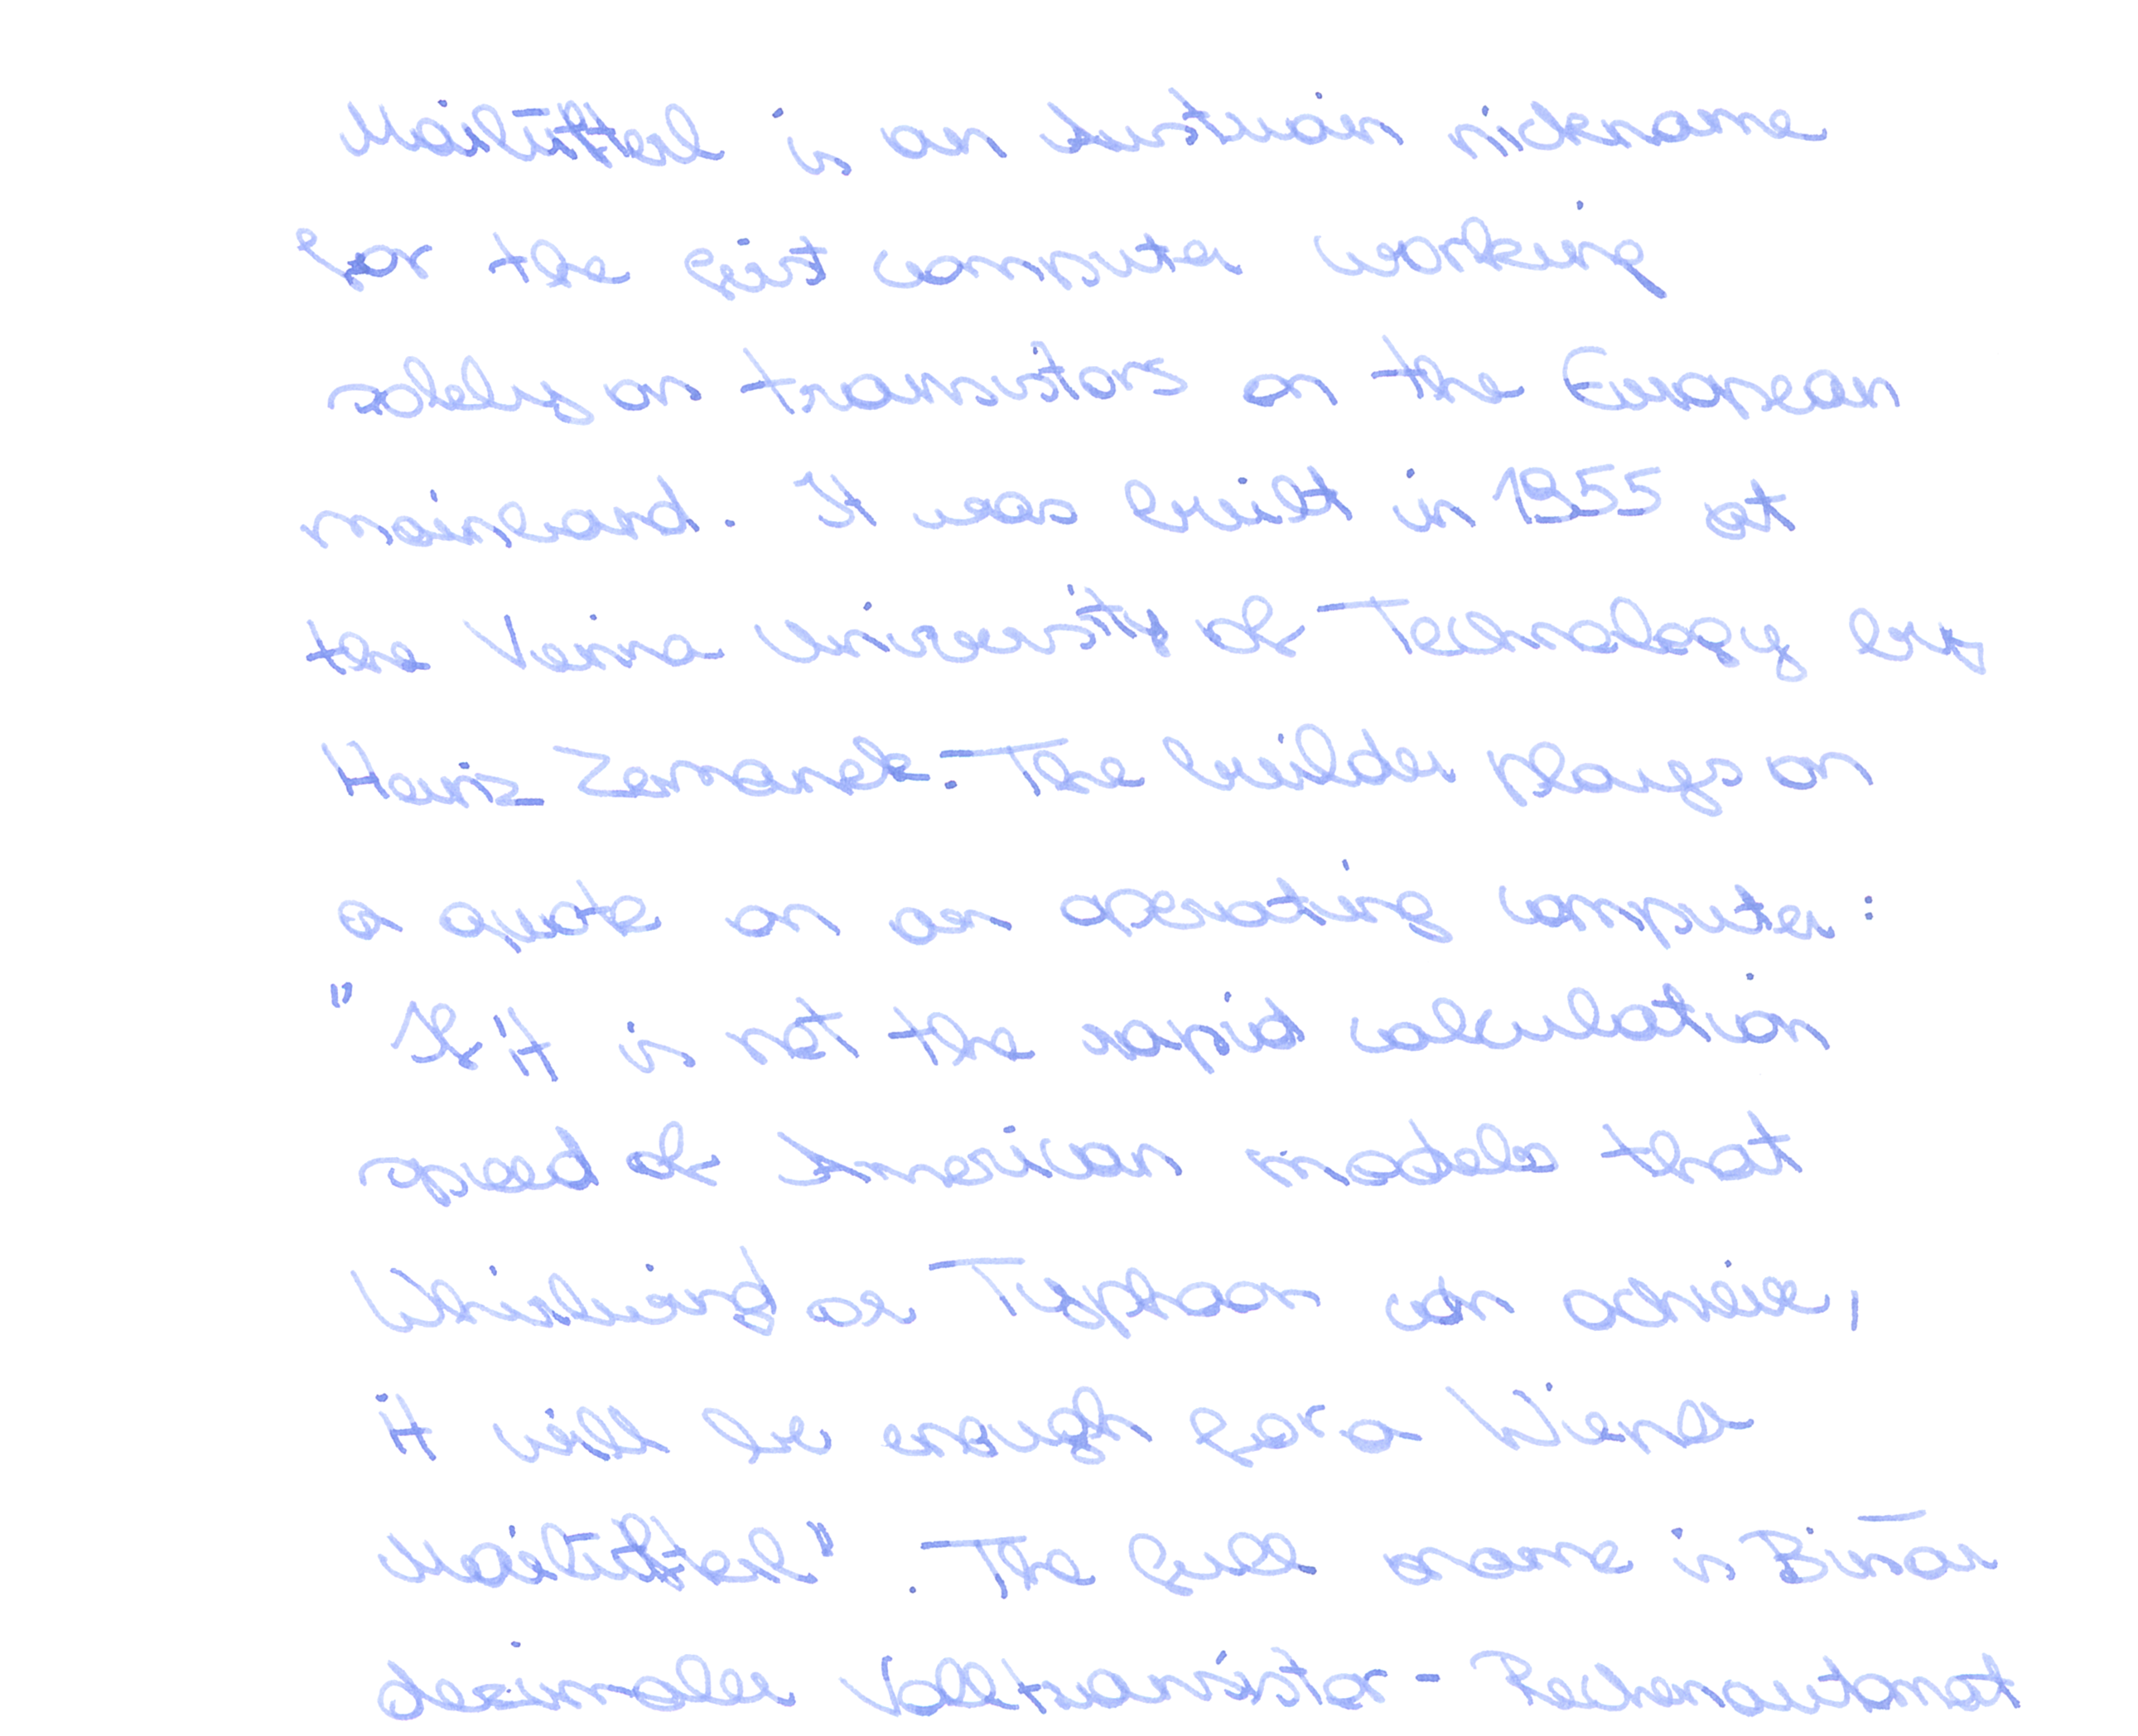 Mailüfterl is an Austrian nickname
for the first computer working
solely on transistors on the European
mainland. It was built in 1955 at
the Vienna University of Technology by
Heinz Zemanek. The builder plays on
a quote on an operating computer:
"If it is not the rapid calculation
speed of American models that
Whirlwind or Typhoon can achieve,
it will be enough for a Wiener
Mailüfterl". The full name is Binär
dezimaler Volltransistor-Rechenautomat